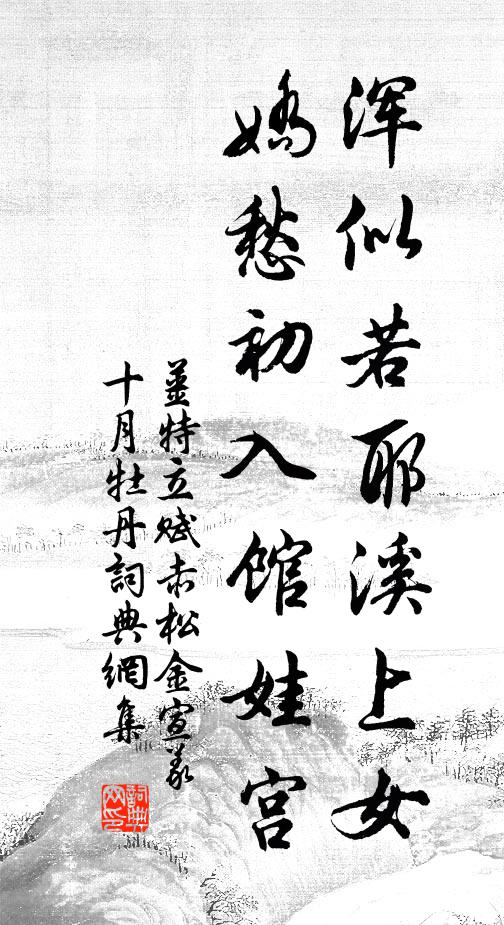 浑似若耶溪上女
娇愁初入馆娃宫
姜特立赋赤松金宣义
十月牡丹詞典網集
詞典网印